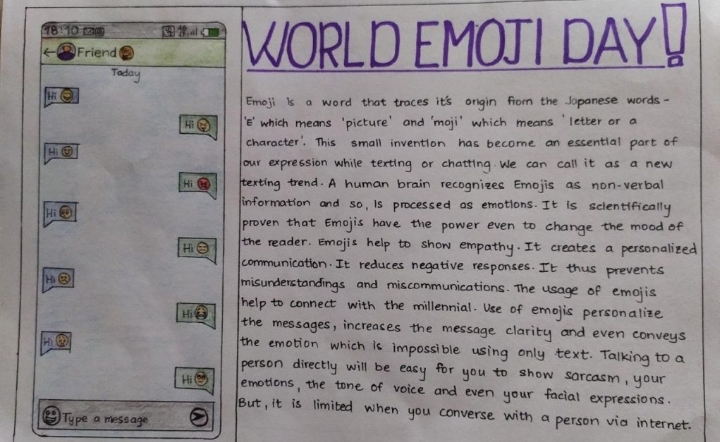 18:10
← Friend
Today
Hi
Hi
Hi
Hi
Hi
Hi
Hi
Hi
Hi
Hi
Type a message
WORLD EMOJI DAY!
Emoji is a word that traces it's origin from the Japanese words -
'E' which means 'picture' and 'moji' which means 'letter or a
character'. This small invention has become an essential part of
our expression while texting or chatting. We can call it as a new
texting trend. A human brain recognizes Emojis as non-verbal
information and so, is processed as emotions. It is scientifically
proven that Emojis have the power even to change the mood of
the reader. Emojis help to show empathy. It creates a personalized
communication. It reduces negative responses. It thus prevents
misunderstandings and miscommunications. The usage of emojis
help to connect with the millennial. Use of emojis personalize
the messages, increases the message clarity and even conveys
the emotion which is impossible using only text. Talking to a
person directly will be easy for you to show sarcasm, your
emotions, the tone of voice and even your facial expressions.
But, it is limited when you converse with a person via internet.